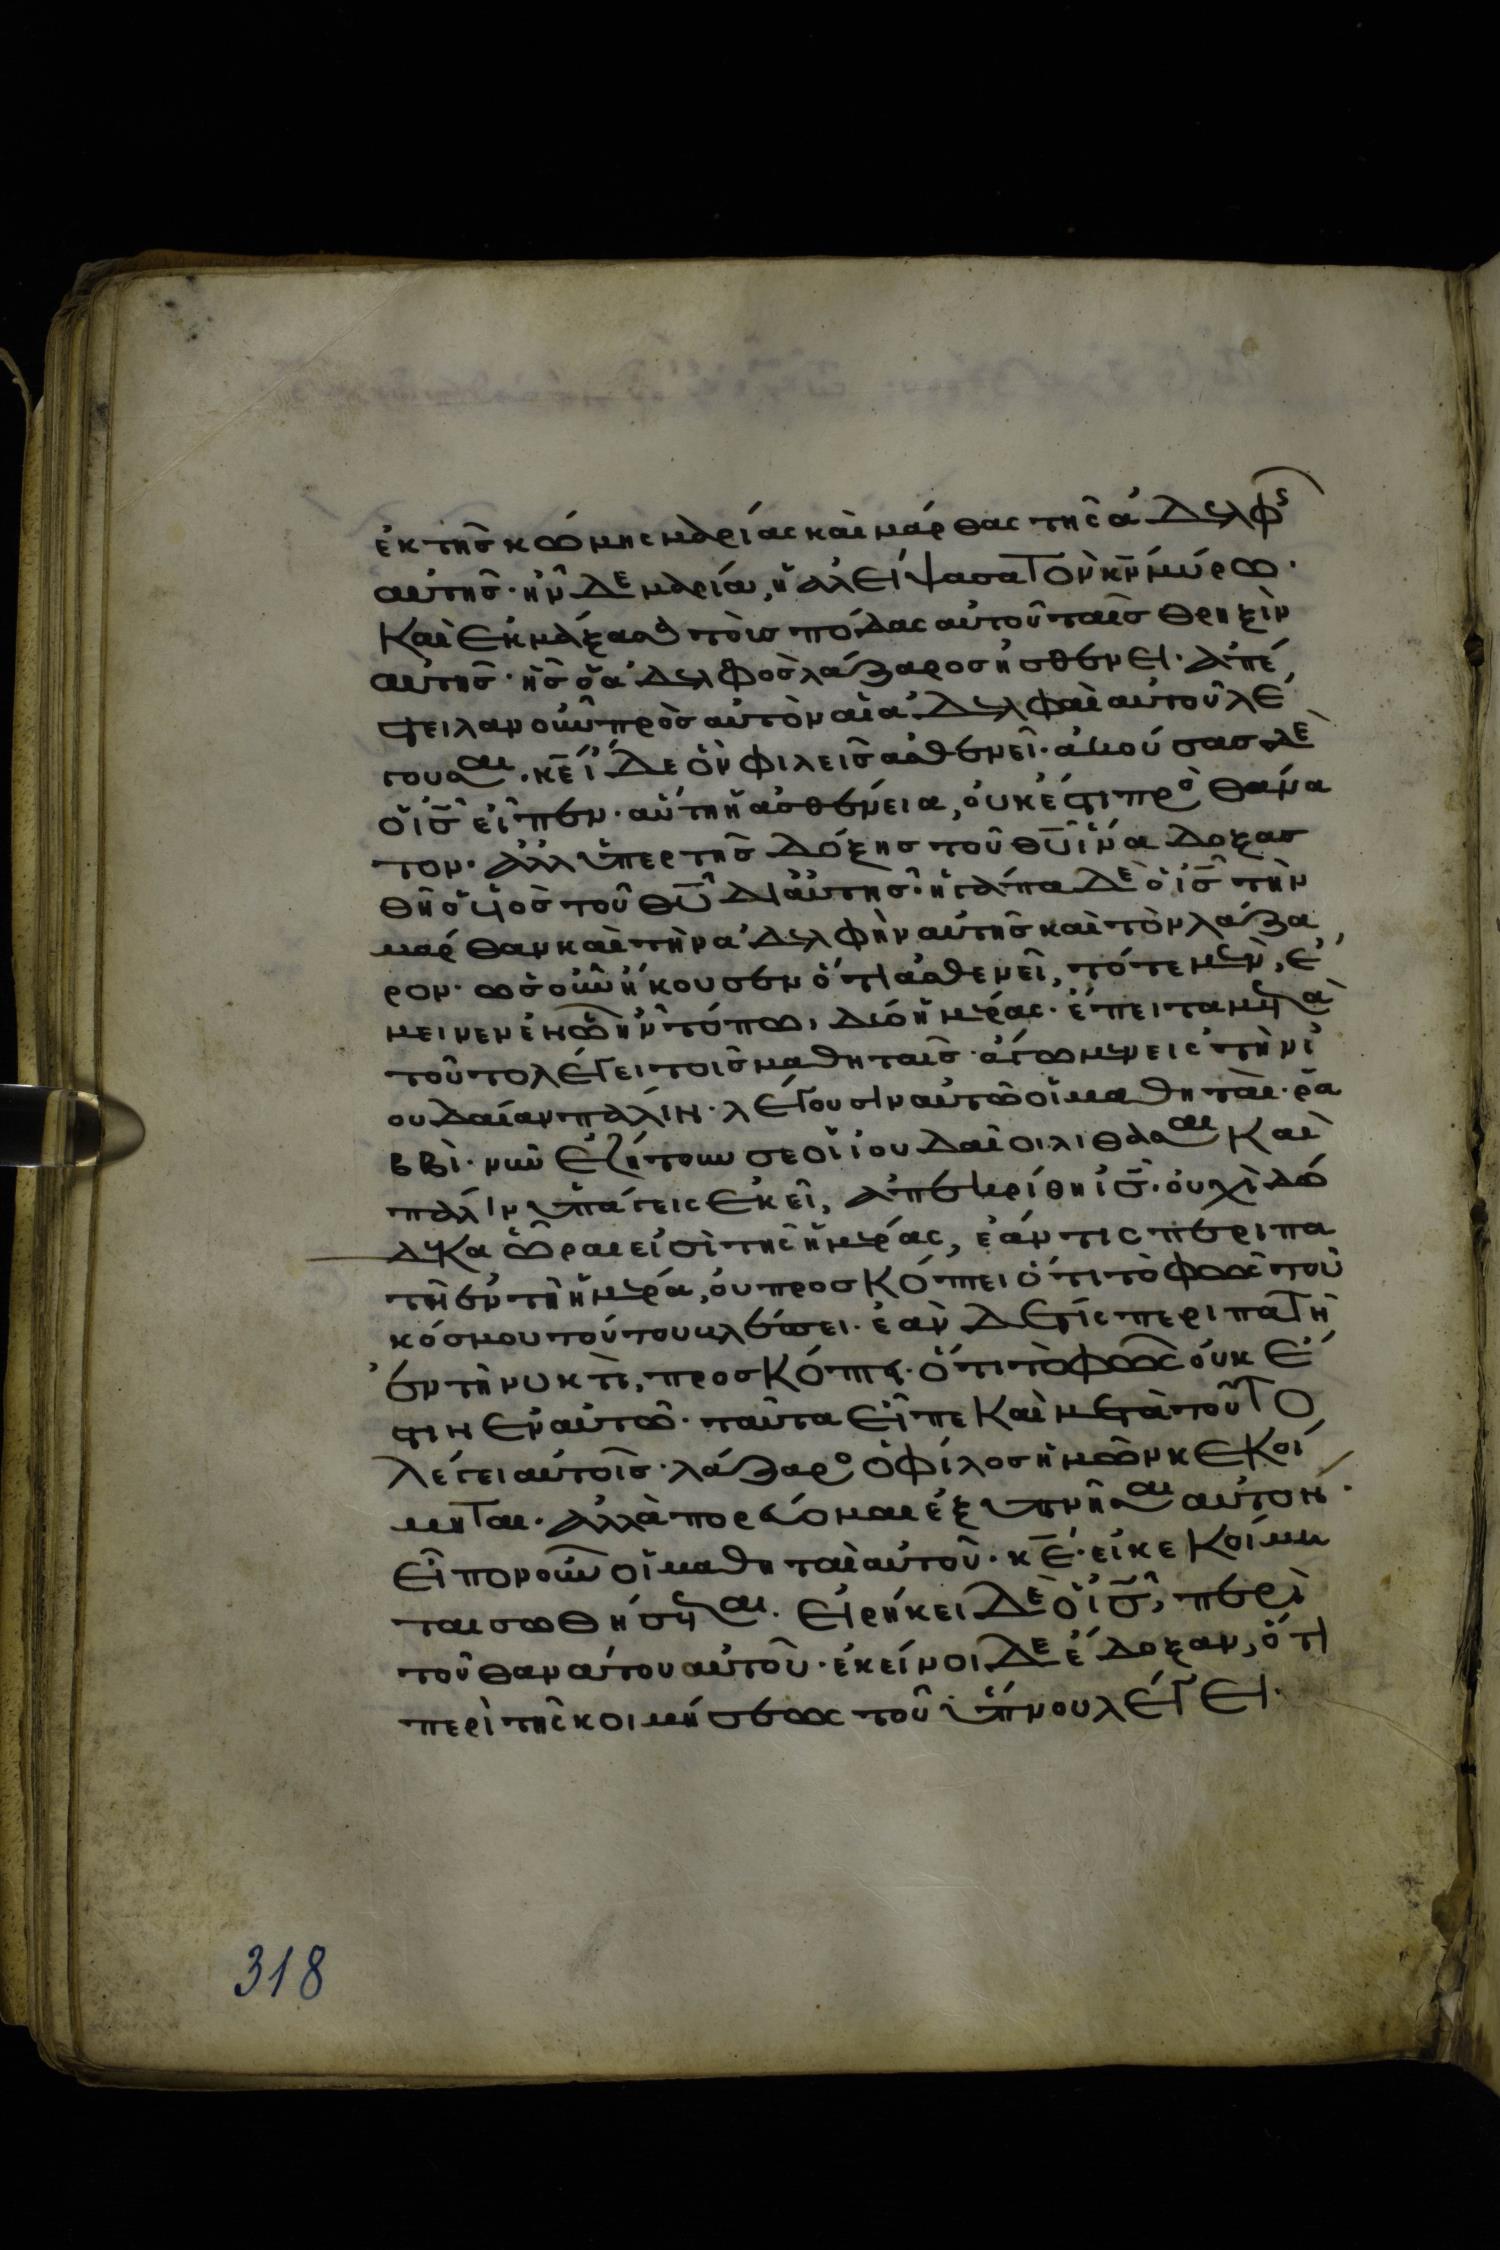 ἐκ τῆς κώμης μαρίας καὶ μάρθας τῆς ἀδελφ(ῆς)
αὐτῆς· ἦν δὲ μαρία, ἡ ἀλείψασα τὸν κ̅ν̅ μύρω·
καὶ ἐκμάξασα τοὺς πόδας αὐτοῦ ταῖς θρηξὶν
αὐτῆς· ἧς ὁ ἀδελφὸς λάζαρος ἠσθένει· ἀπέ
στειλαν οὖν πρὸς αὐτὸν αἱ ἀδελφαὶ αὐτοῦ λέ
γουσαι· κ̅ε̅ ἴδε ὃν φιλεῖς ἀσθενεῖ· ἀκούσας δὲ
ὁ ι̅ς̅ εἶπεν· αὕτη ἡ ἀσθένεια, οὐκ ἔστι προ θάνα
τον· ἀλλ ὑπερ τῆς δόξης τοῦ θ̅υ̅ ἵνα δοξασ
θῆ ὁ υἱὸς τοῦ θ̅υ̅ δι αὐτῆς· ἠγάπα δὲ ὁ ι̅ς̅ τὴν
μάρθαν καὶ τὴν ἀδελφὴν αὐτῆς καὶ τὸν λάζα
ρον· ὡς οὖν ἤκουσεν ὅτι ἀσθενεῖ, τότε μὲν, ἔ
μεινεν ἐν ὧ ἦν τόπω, δύο ἡμέρας· ἔπειτα μετὰ
τοῦτο λέγει τοῖς μαθηταῖς· ἄγωμεν εἰς τὴν ἰ
ουδαίαν πάλιν· λέγουσιν αὐτῶ οἱ μαθηταί· ρα
ββὶ· νῦν ἐζήτουν σε οἱ ἰουδαῖοι λιθάσαι καὶ
πάλιν ὑπάγεις ἐκεῖ, ἀπεκρίθη ι̅ς̅· οὐχὶ δώ
δεκα ὧραι εἰσὶ τῆς ἡμέρας, ἐάν τις περιπα
τῆ ἐν τῆ ἡμέρα, οὐ προσκόπτει ὅτι τὸ φῶς τοῦ
κόσμου τούτου βλέπει· ἐὰν δέ τις περιπατῆ
ἐν τῆ νυκτὶ, προσκόπτει· ὅτι τὸ φῶς οὐκ ἔ
στιν ἐν αὐτῶ· ταῦτα εἶπε καὶ μετὰ τοῦτο
λέγει αὐτοῖς· λάζαρο ὁ φίλος ἡμῶν κεκοί
μηται· ἀλλὰ πορεύομαι ἐξυπνῆσαι αὐτον·
εἶπον οὖν οἱ μαθηταὶ αὐτοῦ· κ̅ε̅· εἰ κεκοίμη
ται σωθήσεται. εἰρήκει δὲ ὁ ι̅ς̅, περὶ
τοῦ θανάτου αὐτοῦ· ἐκείνοι δὲ ἔδοξαν, ὅτι
περὶ τῆς κοιμήσεως τοῦ ὕπνου λέγει·
318